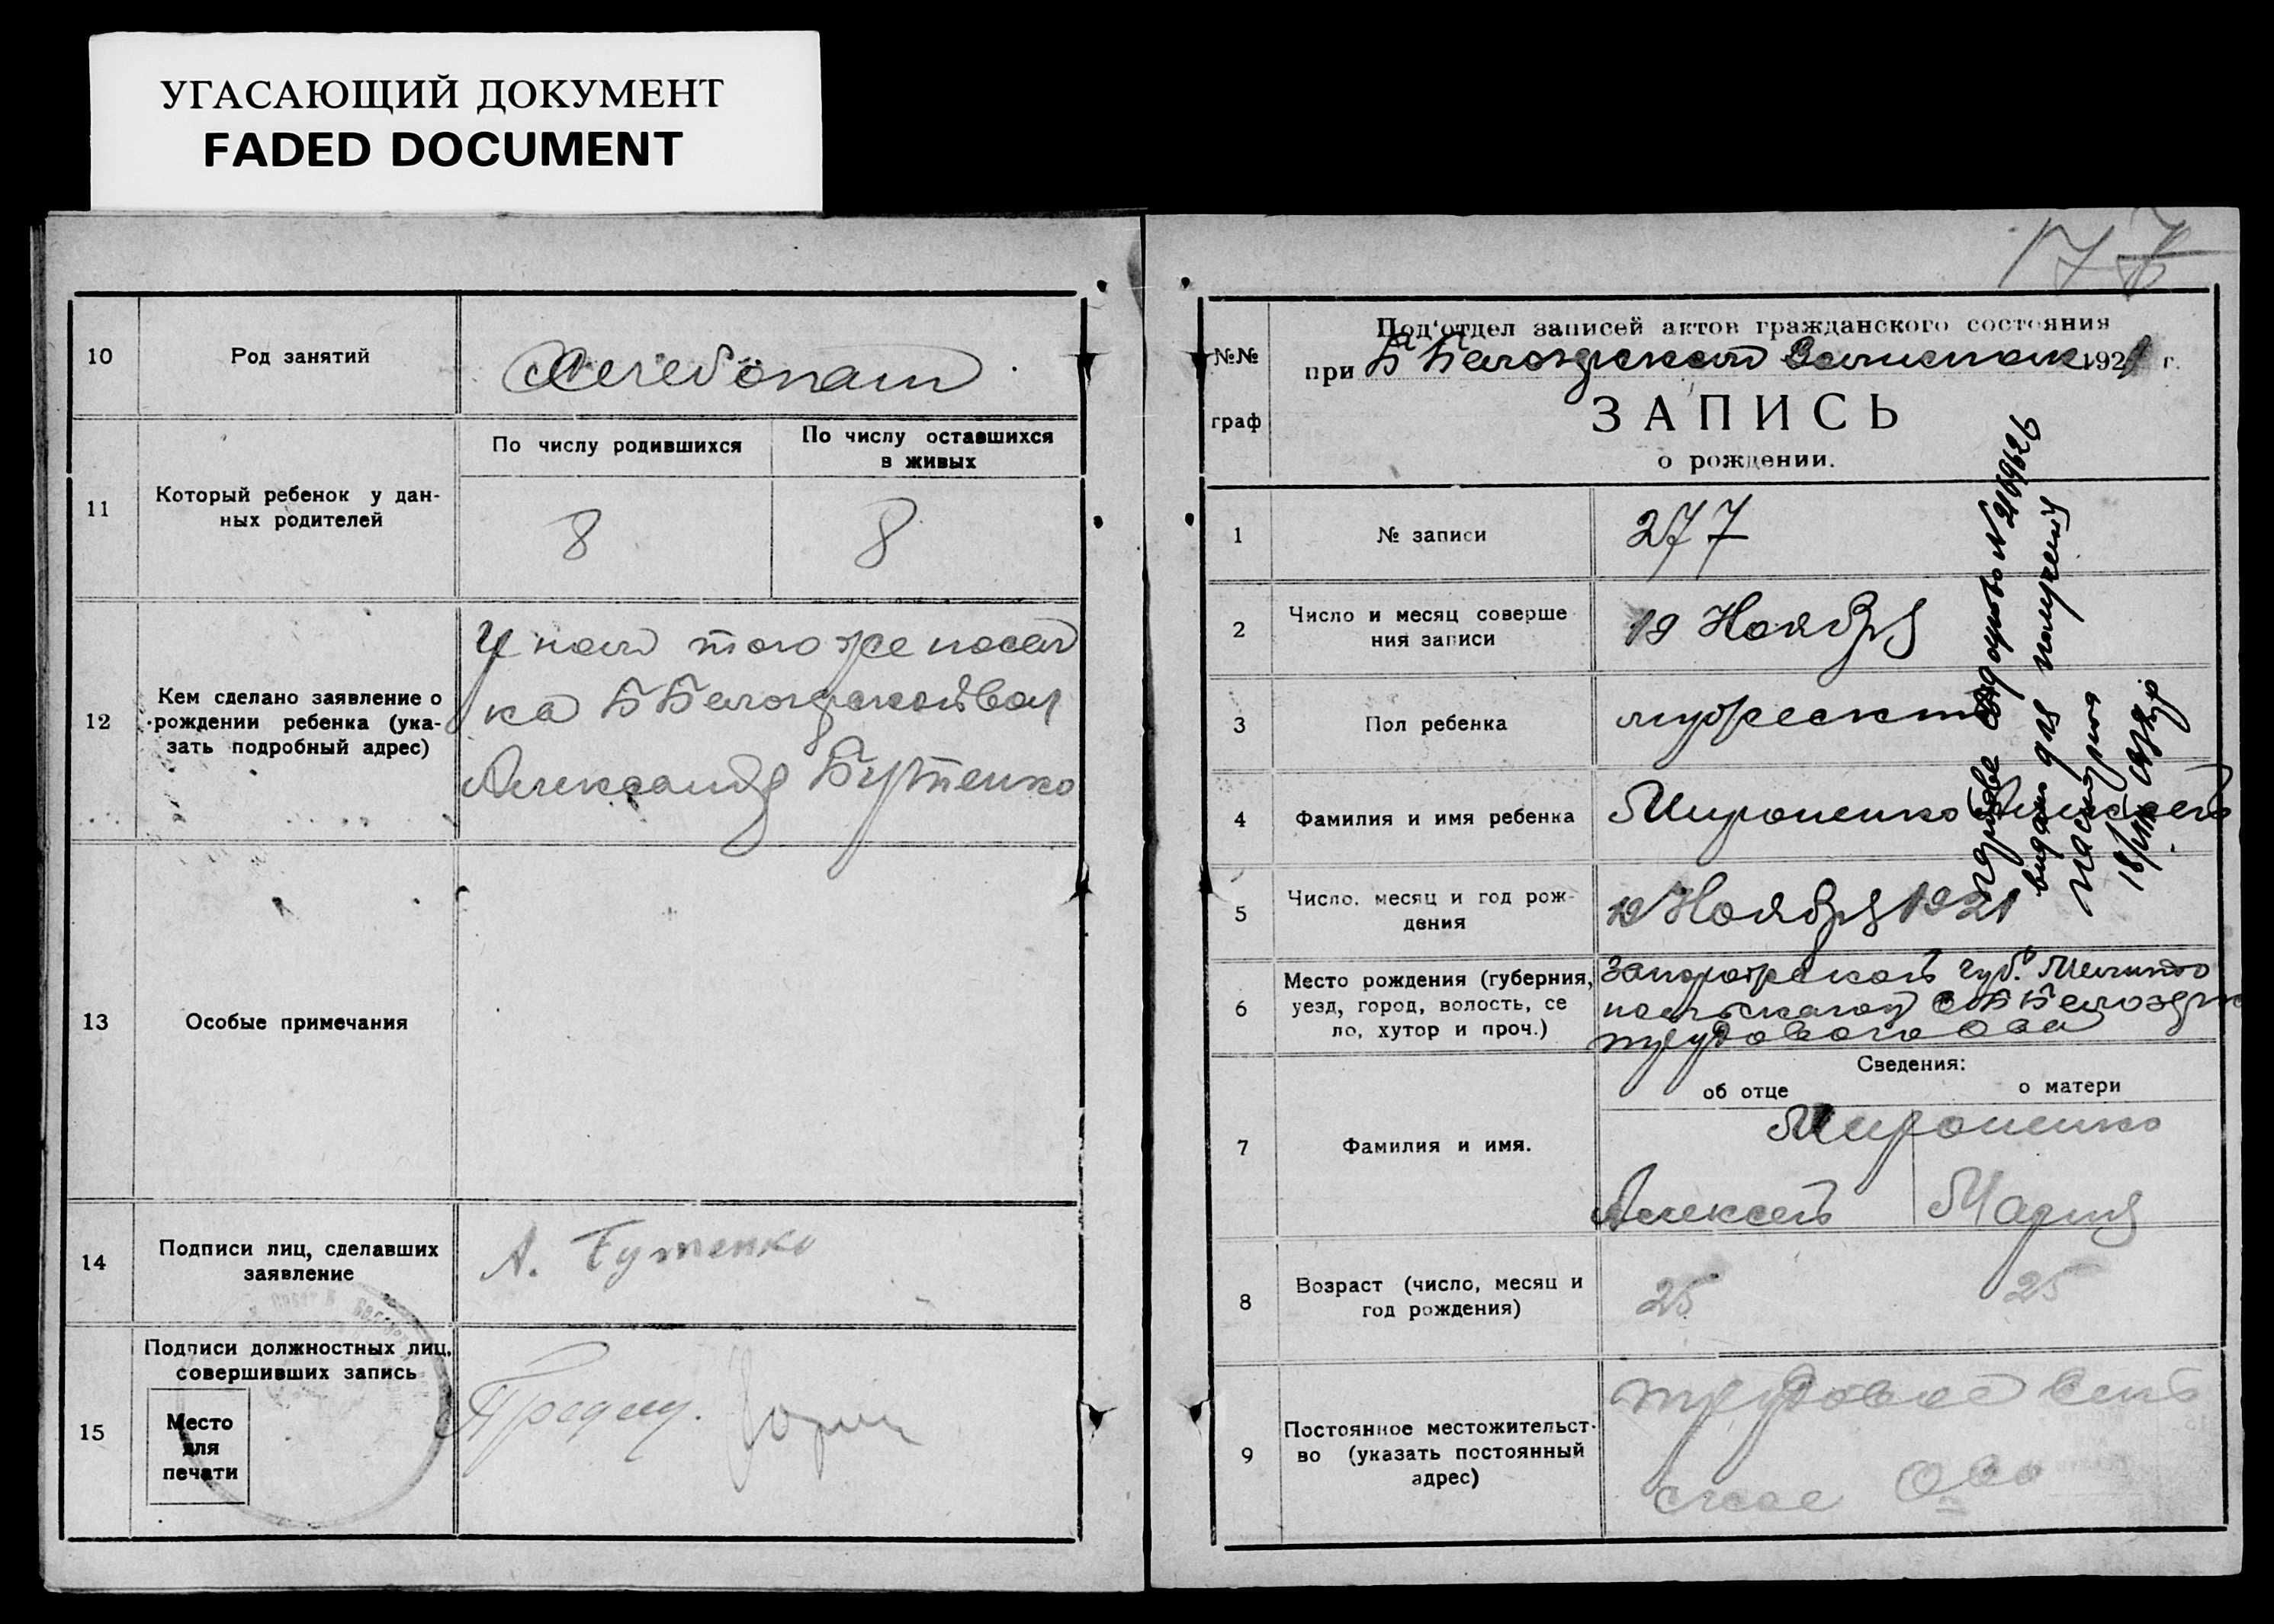 УГАСАЮЩИЙ ДОКУМЕНТ
FADED DOCUMENT
10
Род занятий
Хлебопаш
11
Который ребенок у дан-
ных родителей
По числу родившихся
По числу оставшихся
в живых
8
8
12
Кем сделано заявление о
рождении ребенка (ука-
зать подробный адрес)
того же посел
ка Б Белозерской вол
Александр Бутенко
13
Особые примечания
14
Подписи лиц, сделавших
заявление
А. Бутенко
15
Подписи должностных лиц,
совершивших запись
Место
для
печати
177
№№
граф
Под'отдел записей актов гражданского состояния
при Б Белозерском Волисполк 1921 г.
ЗАПИСЬ
о рождении.
1
№ записи
277
2
Число и месяц соверше
ния записи
19 Ноября
3
Пол ребенка
мужеский
4
Фамилия и имя ребенка
Мироненко Алексей
5
Число. месяц и год рож-
дения
19 Ноября 1921
6
Место рождения (губерния,
уезд, город, волость, се
ло, хутор и проч.)
Запорожской губ. Мелито
польского у Б Белозерк
трудового Ова
Сведения:
об отце
о матери
7
Фамилия и имя.
Мироненко
Алексей
Мария
8
Возраст (число, месяц и
год рождения)
25
25
9
Постоянное местожительст-
во (указать постоянный
адрес)
трудовое сель
ское Ово
видано для получения
паспорта
18/VIII